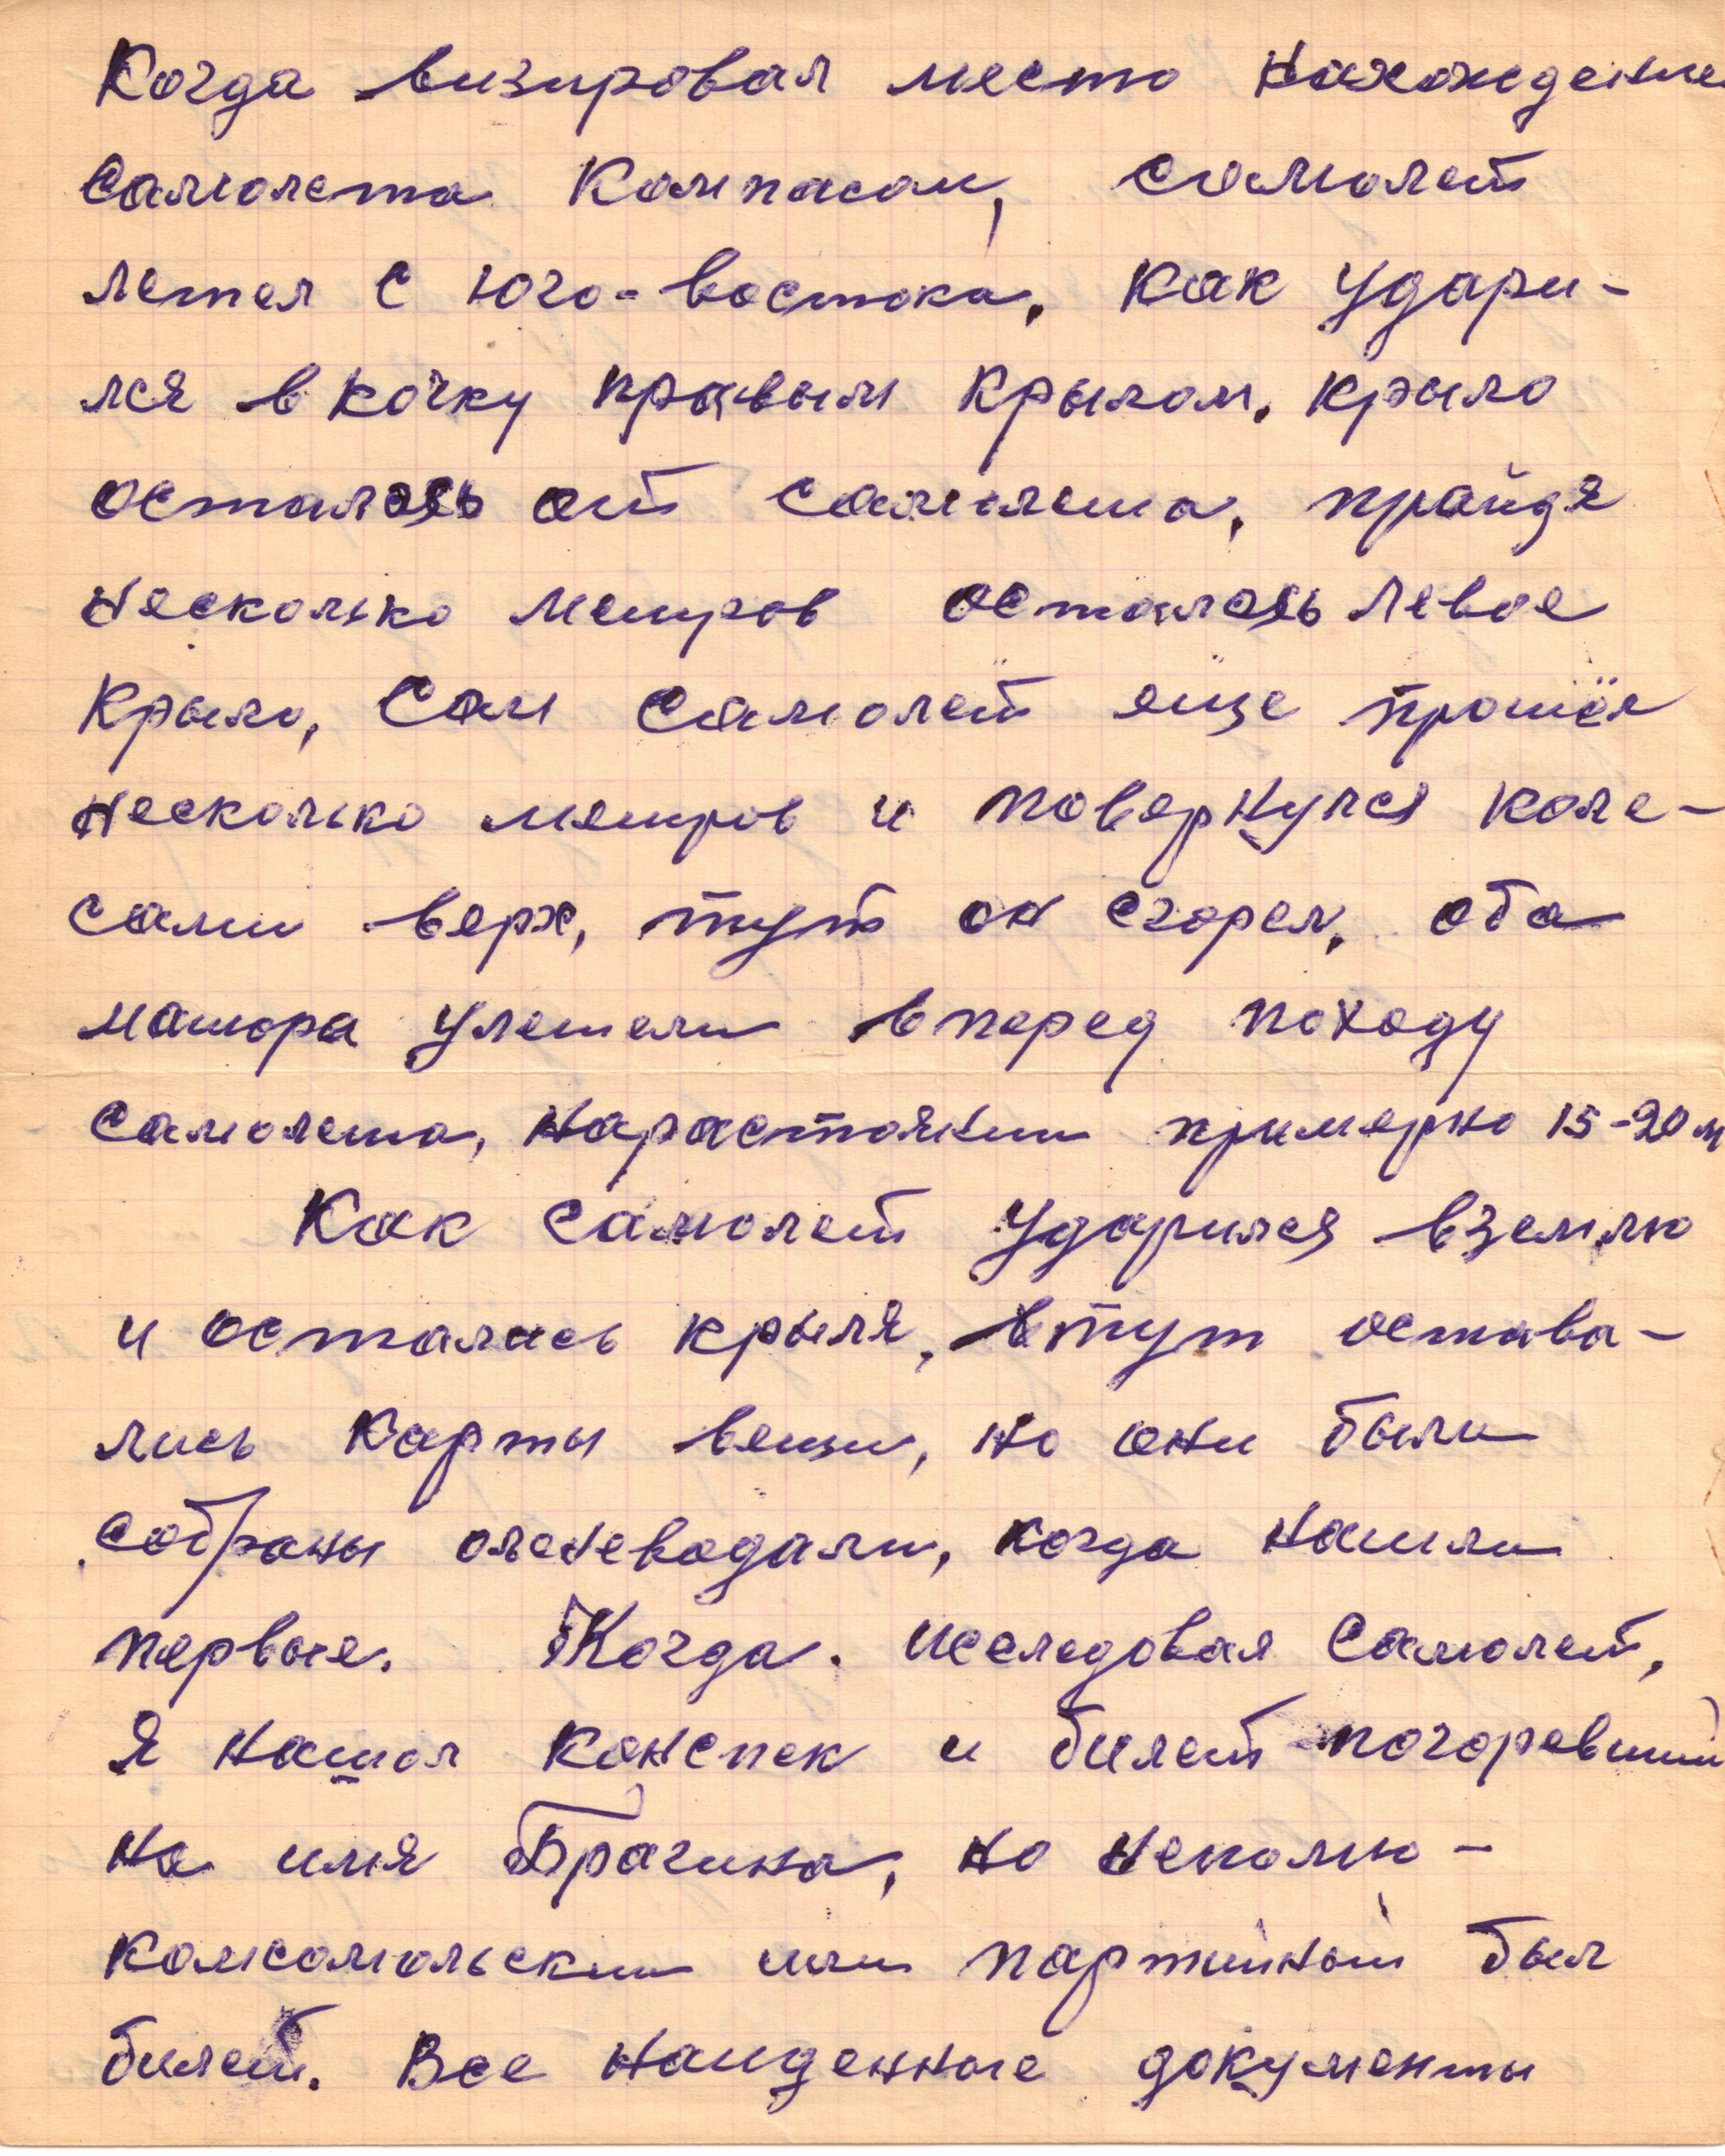 Когда визировал место нахождение
самолета компасом, самолет
летел с юго-востока, как удари-
лся в кочку правым крылом, крыло
осталось от самолета, пройдя
несколько метров осталось левое
крыло, сам самолёт еще прошёл
несколько метров и повернулся коле-
сами верх, тут он сгорел, оба
матора улетели вперед походу
самолета, нарастоянии примерно 15-20 м
Как самолет ударился вземлю
и остались крылья, втут остава-
лись карты вещи, но они были
собраны оленеводами, когда нашли
первые. Когда. иселедовал самолет,
я нашол конспек и билет погоревший
на имя Брагина, но непомню-
комсомольский или партийный был
билет. Все найденные документы